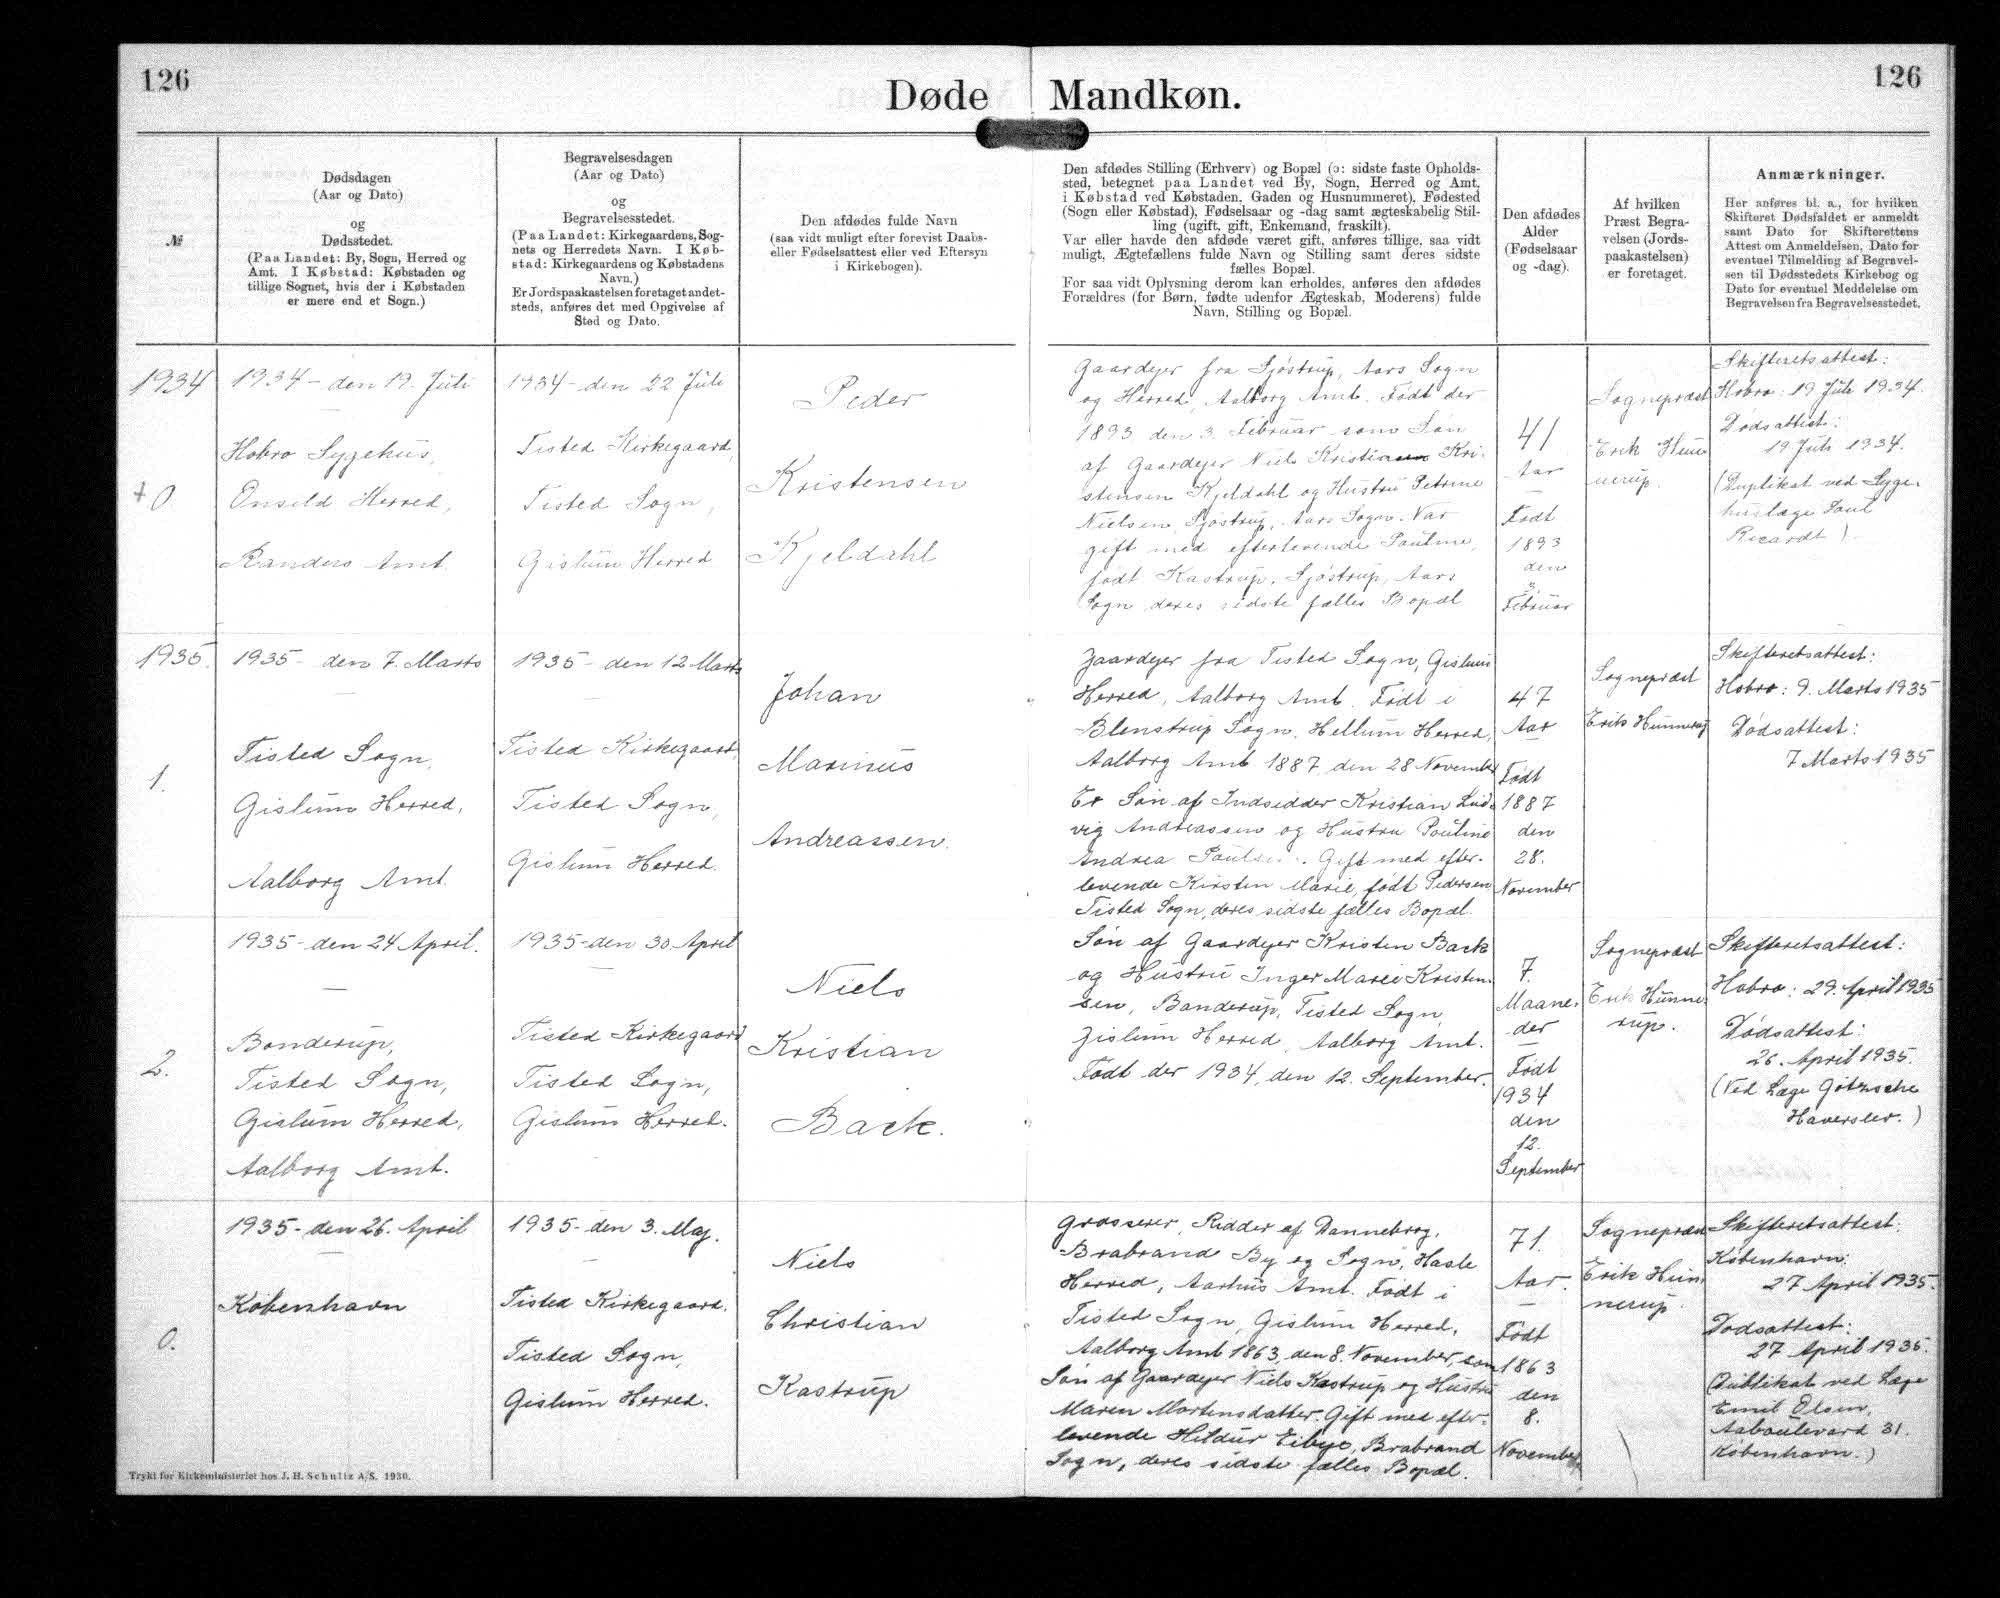 126
Døde Mandkøn.
126
№
Dødsdagen
(Aar og Dato)
og
Dødsstedet.
(Paa Landet: By, Sogn, Herred og
Amt. I Købstad: Købstaden og
tillige Sognet, hvis der i Købstaden
er mere end et Sogn.)
Begravelsesdagen
(Aar og Dato)
og
Begravelsesstedet.
(Paa Landet: Kirkegaardens, Sog-
nets og Herredets Navn. I Køb-
stad: Kirkegaardens og Købstadens
Navn.)
Er Jordspaakastelsen foretaget andet-
steds, anføres det med Opgivelse af
Sted og Dato.
Den afdødes fulde Navn
(saa vidt muligt efter forevist Daabs-
eller Fødselsattest eller ved Eftersyn
i Kirkebogen).
Den afdødes Stilling (Erhverv) og Bopæl (ɔ: sidste faste Opholds-
sted, betegnet paa Landet ved By, Sogn, Herred og Amt,
i Købstad ved Købstaden, Gaden og Husnummeret), Fødested
(Sogn eller Købstad), Fødselsaar og -dag samt ægteskabelig Stil-
ling (ugift, gift, Enkemand, fraskilt).
Var eller havde den afdøde været gift, anføres tillige, saa vidt
muligt, Ægtefællens fulde Navn og Stilling samt deres sidste
fælles Bopæl.
For saa vidt Oplysning derom kan erholdes, anføres den afdødes
Forældres (for Børn, fødte udenfor Ægteskab, Moderens) fulde
Navn, Stilling og Bopæl.
Den afdødes
Alder
(Fødselsaar
og -dag).
Af hvilken
Præst Begra-
velsen (Jords-
paakastelsen)
er foretaget.
Anmærkninger.
Her anføres bl. a., for hvilken
Skifteret Dødsfaldet er anmeldt
samt Dato for Skifterettens
Attest om Anmeldelsen, Dato for
eventuel Tilmelding af Begravel-
sen til Dødsstedets Kirkebog og
Dato for eventuel Meddelelse om
Begravelsen fra Begravelsesstedet.
1934
+ 0.
1934 - den 19. Juli
Hobro Sygehus,
Onsild Herred,
Randers Amt
1934 - den 22 Juli
Tisted Kirkegaard
Tisted Sogn,
Gislum Herred
Peder
Kristensen
Kjeldahl
Gaardejer fra Sjöstrup, Aars Sogn
og Herred, Aalborg Amt. Født der
1893 den 3. Februar som Søn
af Gaardejer Niels Kristiansen Kri-
stensen Kjeldahl og Hustru Petrine
Nielsen, Sjöstrup, Aars Sogn. Var
gift med efterlevende Pouline,
født Kastrup, Sjöstrup, Aars
Sogn deres sidste fælles Bopæl
41
Aar
Født
1893
den
3.
Februar
Sognepræst
Erik Hun-
nerup.
Skifteretsattest:
Hobro: 19 Juli 1934.
Dødsattest:
19 Juli 1934.
(Duplikat ved Syge-
huslæge Poul
Ricardt).
1935.
1.
1935 - den 7. Marts
Tisted Sogn,
Gislum Herred,
Aalborg Amt.
1935 - den 12 Marts
Tisted Kirkegaard,
Tisted Sogn,
Gislum Herred.
Johan
Marinus
Andreassen.
Gaardejer fra Tisted Sogn, Gislum
Herred, Aalborg Amt. Født i
Blenstrup Sogn, Hellum Herred,
Aalborg Amt 1887, den 28 November
Er Søn af Indsidder Kristian Lud-
vig Andreassen og Hustru Pouline
Andrea Poulsen. Gift med efter-
levende Kirsten Marie, født Pedersen
Tisted Sogn, deres sidste fælles Bopæl.
47
Aar
Født
1887
den
28.
November
Sognepræst
Erik Hunnerup
Skifteretsattest:
Hobro: 9. Marts 1935
Dødsattest:
7 Marts 1935
2.
1935 - den 24 April.
Bonderup,
Tisted Sogn,
Gislum Herred,
Aalborg Amt.
1935 - den 30 April
Tisted Kirkegaard
Tisted Sogn,
Gislum Herred.
Niels
Kristian
Back.
Søn af Gaardejer Kristen Back
og Hustru Inger Marie Kristen-
sen, Bonderup, Tisted Sogn
Gislum Herred, Aalborg Amt.
Født der 1934, den 12. September.
7.
Maane-
der
Født
1934
den
12.
September
Sognepræst
Erik Hunne-
rup.
Skifteretsattest:
Hobro: 29. April 1935
Dødsattest:
26. April 1935.
(Ved Læge Götzsche
Haverslev.)
0.
1935 - den 26. April
København
1935 - den 3. Maj.
Tisted Kirkegaard.
Tisted Sogn,
Gislum Herred.
Niels
Christian
Kastrup
Grosserer, Ridder af Danneborg,
Brabrand By og Sogn, Hasle
Herred, Aarhus Amt. Født i
Tisted Sogn, Gislum Herred,
Aalborg Amt 1863, den 8. November, som
Søn af Gaardejer Niels Kastrup og Hustru
Maren Mortensdatter. Gift med efter-
levende Hildur Eibye, Brabrand
Sogn, deres sidste fælles Bopæl.
71.
Aar.
Født
1863
den
8.
November
Sognepræst
Erik Hun-
nerup.
Skifteretsattest:
København:
27 April 1935.
Dødsattest:
27 April 1935.
(Dublikat ved Læge
Emil Olsen,
Aaboulevard 31.
København.)
Trykt for Kirkeministeriet hos J. H. Schultz A/S. 1930.